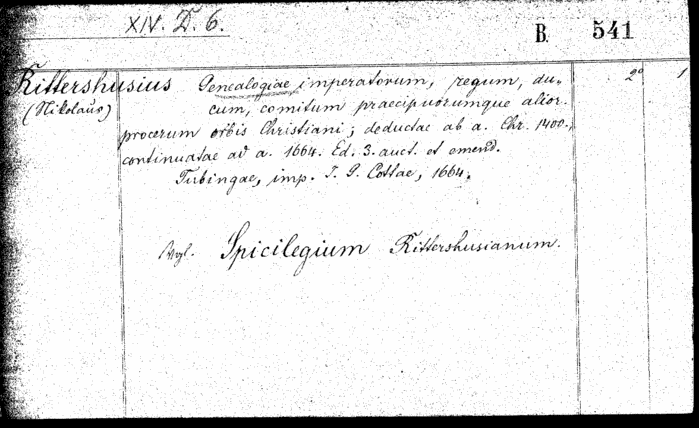 XIV. D. 6.
B. 541
Rittershusius Genealogiae imperatorum, regum, du- 2° 1
(Nikolaus) cum, comitum praecipuorumque alior.
procerum orbis Christiani; deductae ab a. Chr. 1400.,
continuatae ad a. 1664. Ed. 3. auct. et emend.
Tubingae, imp. J. G. Cottae, 1664.
Vgl. Spicilegium Rittershusianum.